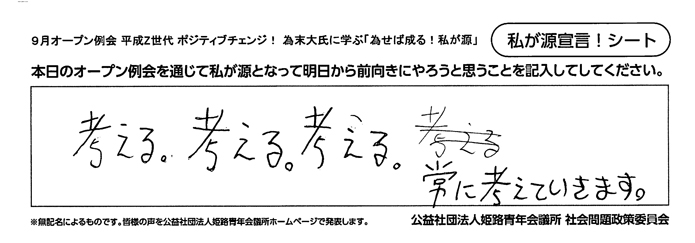 9月オープン例会 平成Z世代 ポジティブチェンジ! 為末大氏に学ぶ「為せば成る!私が源」
私が源宣言!シート
本日のオープン例会を通じて私が源となって明日から前向きにやろうと思うことを記入してしてください。
考える。考える。考える。考える
常に考えていきます。
※無記名によるものです。皆様の声を公益社団法人姫路青年会議所ホームページで発表します。
公益社団法人姫路青年会議所 社会問題政策委員会